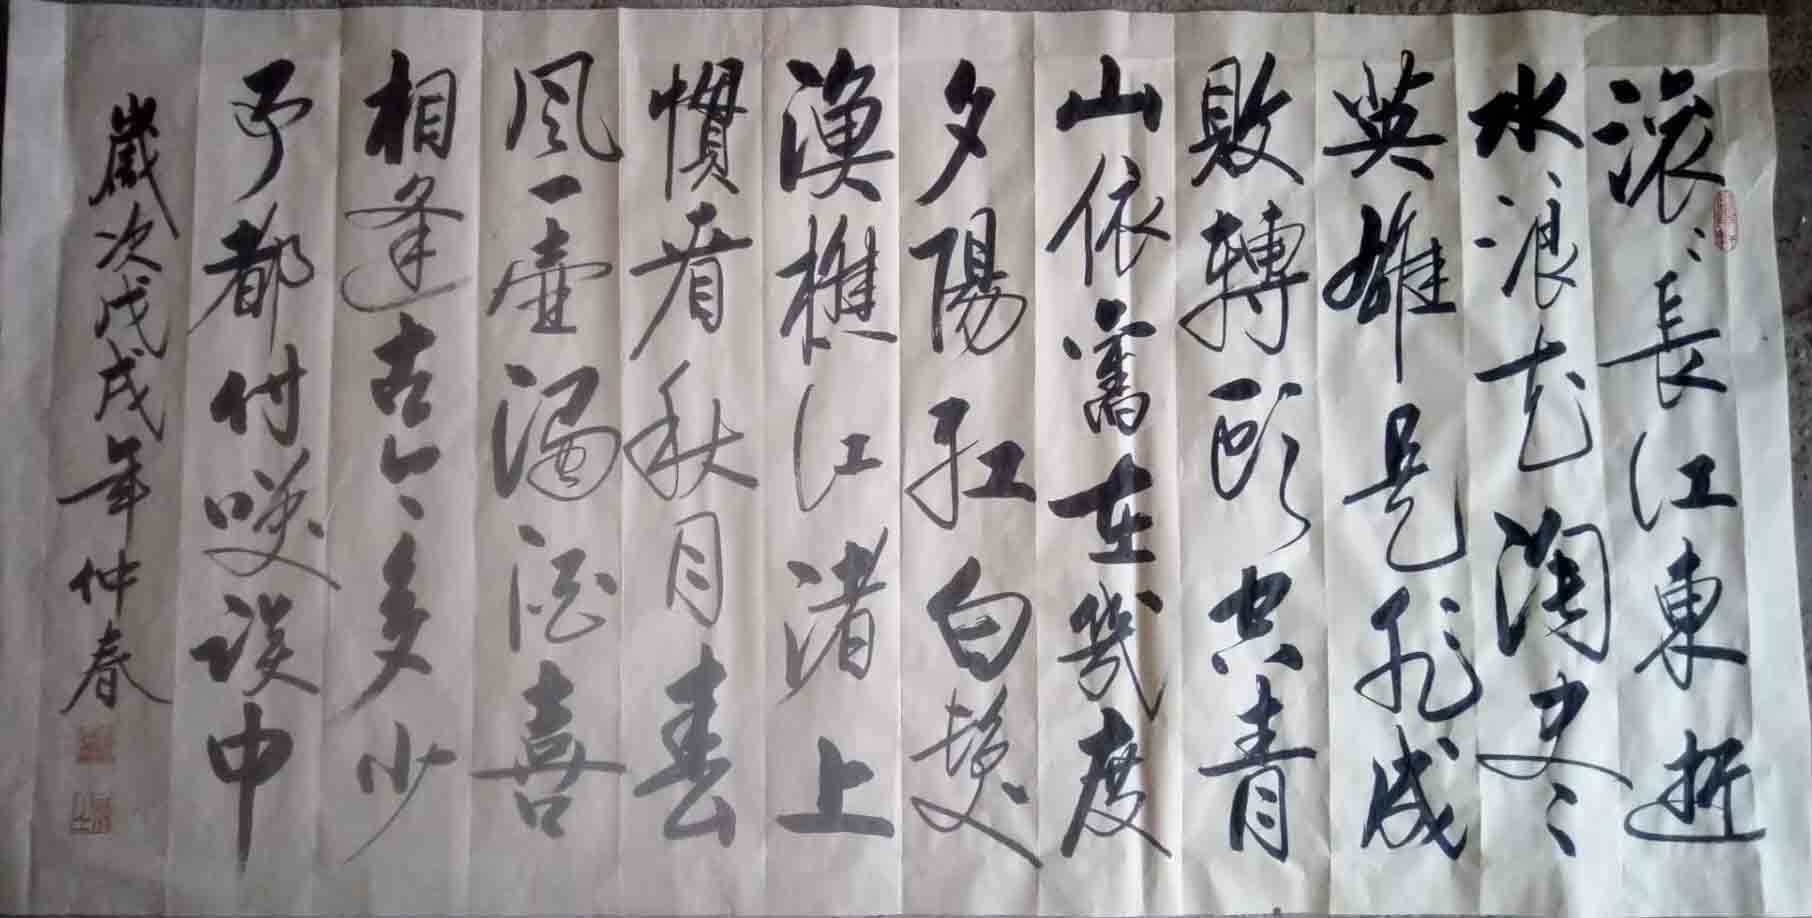 滚〻長江東逝
水浪花淘尽
英雄是非成
敗轉頭空青
山依舊在幾度
夕陽紅白髮
漁樵江渚上
慣看秋月春
风一壺濁酒喜
相逢古今多少
事都付咲談中
歲次戊戌年仲春